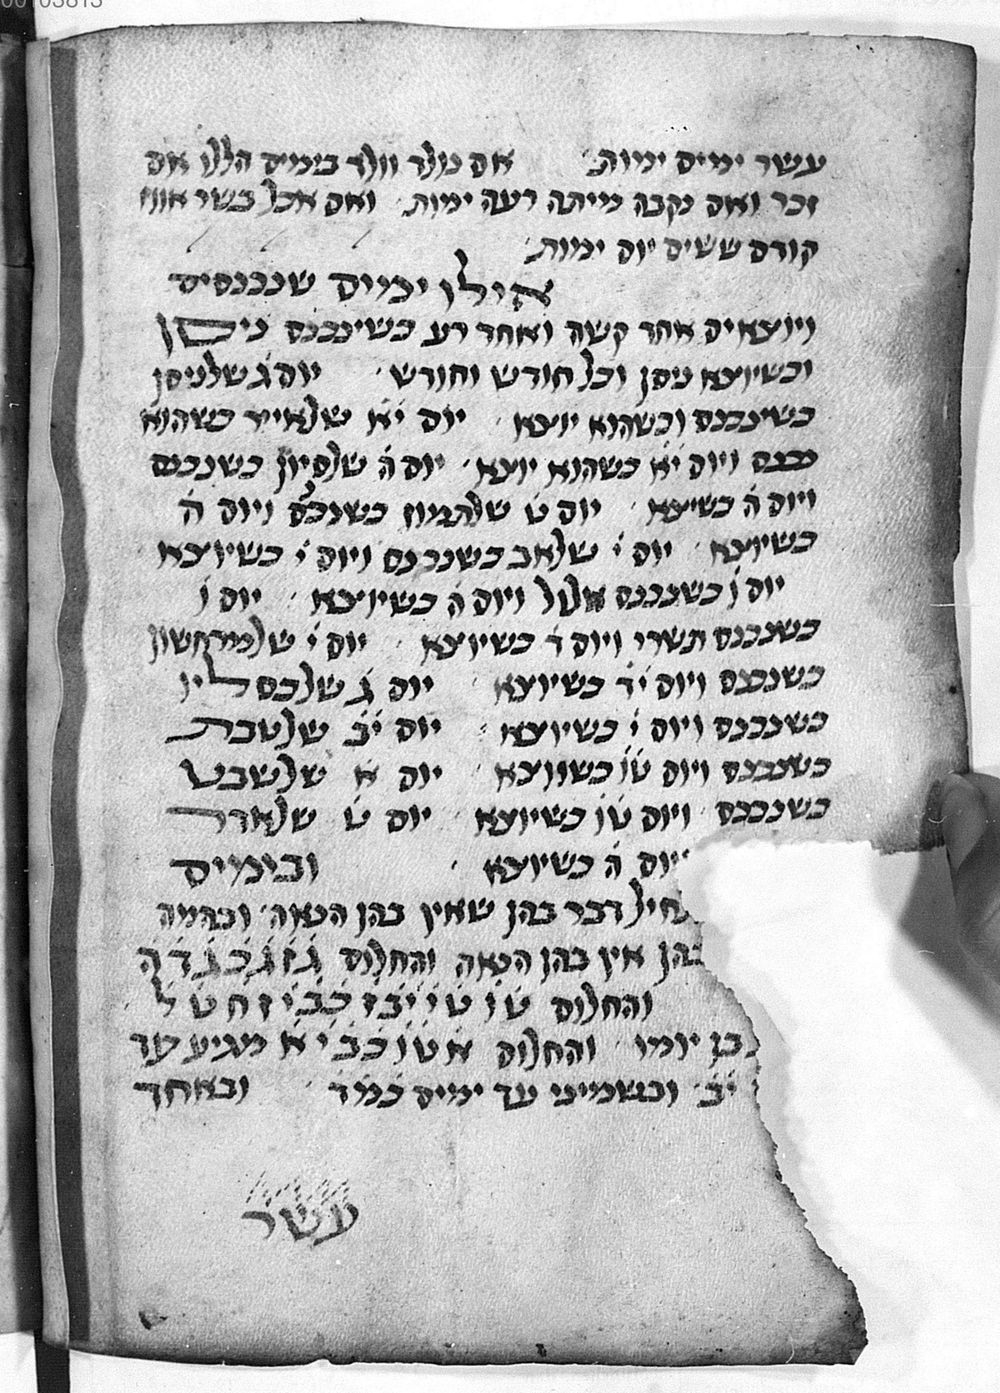 עשר ימים ימות׳ אם נולד וולד בימים הללו אם
זכר ואם נקבה מייתה רעה ימות׳ ואם אכל בשר אווז
קודם ששים יום ימות׳
אילו ימים שנכנסים
ויוצאים אחד קשה ואחד רע כשיכנס ניסן
וכשיוצא ניסן וכל חודש וחודש׳ יום ג֗ שלניסן
כשיכנס וכשהוא יוצא׳ יום י֗א֗ שלאייר כשהוא
נכנס ויום י֗א֗ כשהוא יוצא׳ יום ה֗ שלסיון כשנכנס
ויום ה֗ כשיצא׳ יום ט֗ שלתמוז כשנכנס ויום ה֗
כשיוצא׳ יום י֗ שלאב כשנכנס ויום י֗ כשיוצא
יום ו֗ כשנכנס אלול ויום ה֗ כשיוצא׳ יום ו֗
כשנכנס תשרי ויום ד֗ כשיוצא׳ יום י֗ שלמרחשון
כשנכנס ויום י֗ד֗ כשיוצא׳ יום ג֗ שלכסליו
כשנכנס ויום י֗ כשיוצא׳ יום י֗ב֗ שלטבת
כשנכנס ויום ט֗ו֗ כשיוצא׳ יום א֗ שלשבט
כשנכנס ויום ט֗ו֗ כשיוצא׳ יום ט֗ שלאדר
ויום ה֗ כשיוצא׳ ובימים
דבר בהן שאין בהן הנאה׳ ובהמה
בהן אין בהן הנאה והחלום ג֗ ז֗ ג֗ כ֗ ג֗ ד֗ ה֗
והחלום ט֗ו֗ ט֗ו֗ י֗ב֗ ז֗ כ֗ב֗ י֗ ז֗ ח֗ ט֗ ל֗
בן יומו׳ והחלום א֗ ט֗ו֗ כ֗ב֗ י֗א֗ מגיע עד
י֗ב֗׳ ובשמיני עד ימים כ֗מ֗ד֗׳ ובאחד
עשר